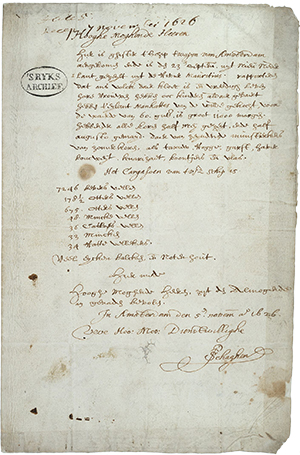 Recep. 7 novemb 1626
Hooghe Moghende Heeren
Hier is ghister t'schip t'wapen van Amsterdam
aengekomen ende is den 23 septem. uyt Nieu Neder
lant gezeylt uyt de rivier Mauritius. rapporteren
dat ons volck daer kloec is en vreedigh leven
haer vrouwen hebben ooc kinders aldaer gebaert
hebben t'eylant Manhattes van de wilden gekocht voor
de waerde van 60 gul. is groot 11000 morgen.
hebbende alle koren half mey gezeyt, ende half
augusto gemayt. daer van zeynden munsterkens
van zomerkoren, als tarwe, rogge, garst, haver
boucweyt, knarizaet, boontjens en vlas.
Het Cargasoen van tsz schip is
7246 Bevers vellen
178½ Otters vellen
675 Otters vellen
48 Mincke vellen
36 Catloes vellen
33 Mincken
34 Ratte vellekens
Veel eycken balcken, en Noten hout.
Hier mede
Hooghe Moghende Heeren, zyt de Almogende
in genade bevolen.
In Amsterdam den 5en novem. ao 1626
Uwe Hoo: Moo: Dienstwillighe
P Schaghen
S RYKS
ARCHIEF